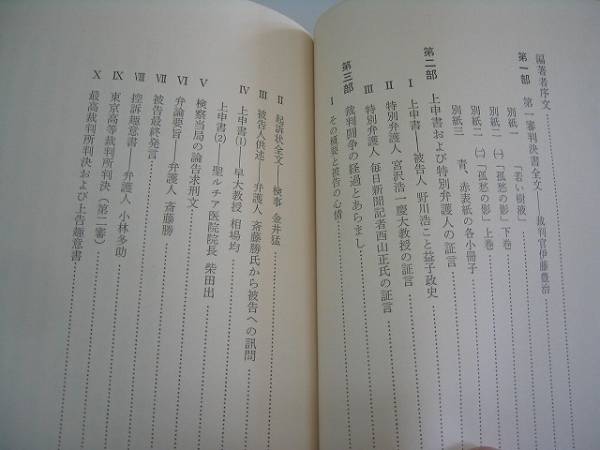 編著者序文
第一部　第一審判決書全文　裁判官伊藤豊治
別紙一　「若い樹液」
別紙二　㈠　「孤愁の影」下巻
別紙二　㈡　「孤愁の影」上巻
別紙三　青、赤表紙の各小冊子
第二部　上申書および特別弁護人の証言
Ⅰ　上申書──被告人　野川浩こと益子政史
Ⅱ　特別弁護人　宮沢浩一慶大教授の証言
Ⅲ　特別弁護人　毎日新聞記者西山正氏の証言
第三部　裁判闘争の経過とあらまし
Ⅰ　その概要と被告の心情
Ⅱ　起訴状全文──検事　金井猛
Ⅲ　被告人供述──弁護人　斎藤勝氏から被告への訊問
Ⅳ　上申書⑴──早大教授　相場均
上申書⑵　聖ルチア医院院長　柴田出
Ⅴ　検察当局の論告求刑文
Ⅵ　弁論要旨　弁護人　斎藤勝
Ⅶ　被告最終発言
Ⅷ　控訴趣意書──弁護人　小林多助
Ⅸ　東京高等裁判所判決（第二審）
Ⅹ　最高裁判所判決および上告趣意書